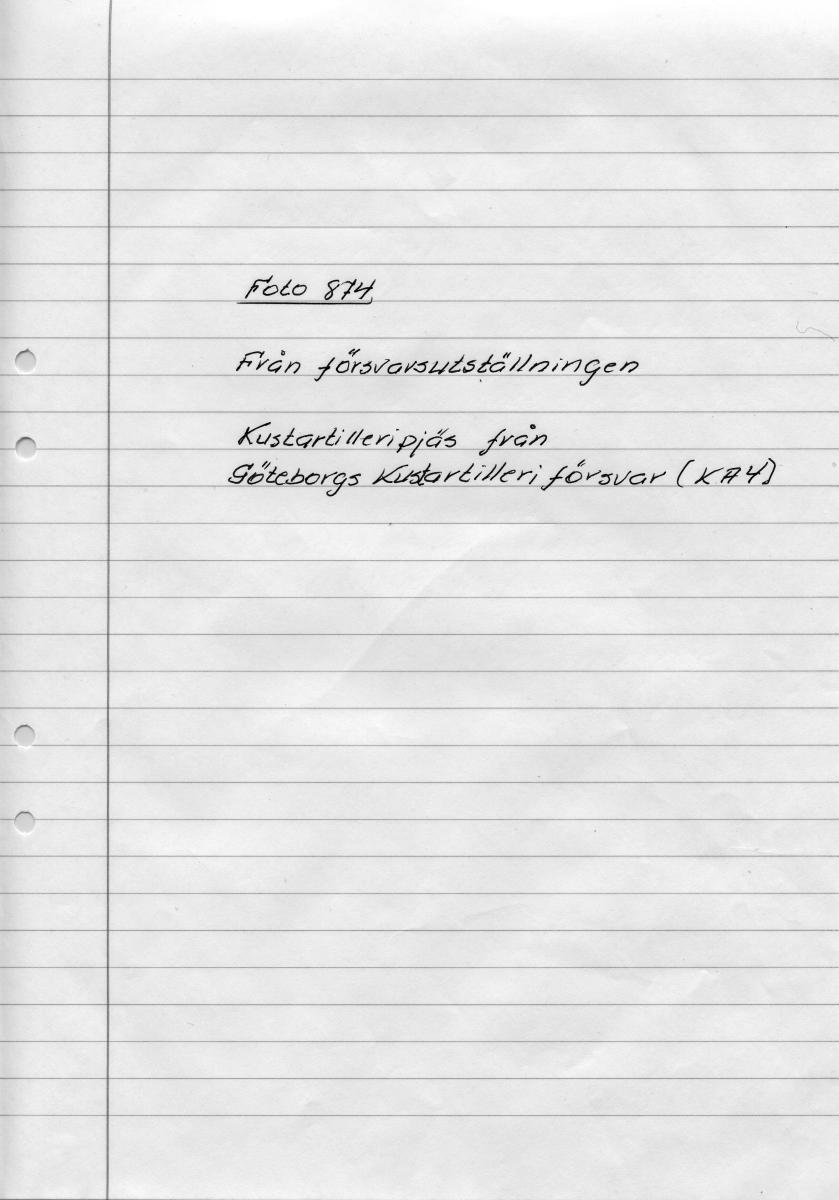 Foto 874
Från försvarsutställningen
Kustartilleripjäs från
Göteborgs Kustartilleriförsvar (KA4)